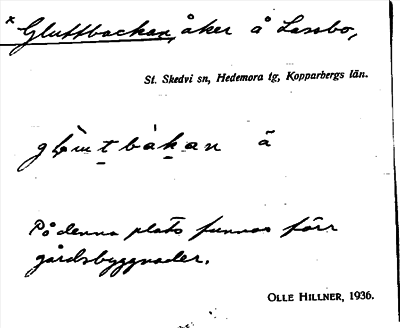 x Gluttbackan, åker å Lassbo,
St. Skedvi sn, Hedemora tg, Kopparbergs län.
å
På denna plats funnos förr
gårdsbyggnader.
OLLE HILLNER, 1936.